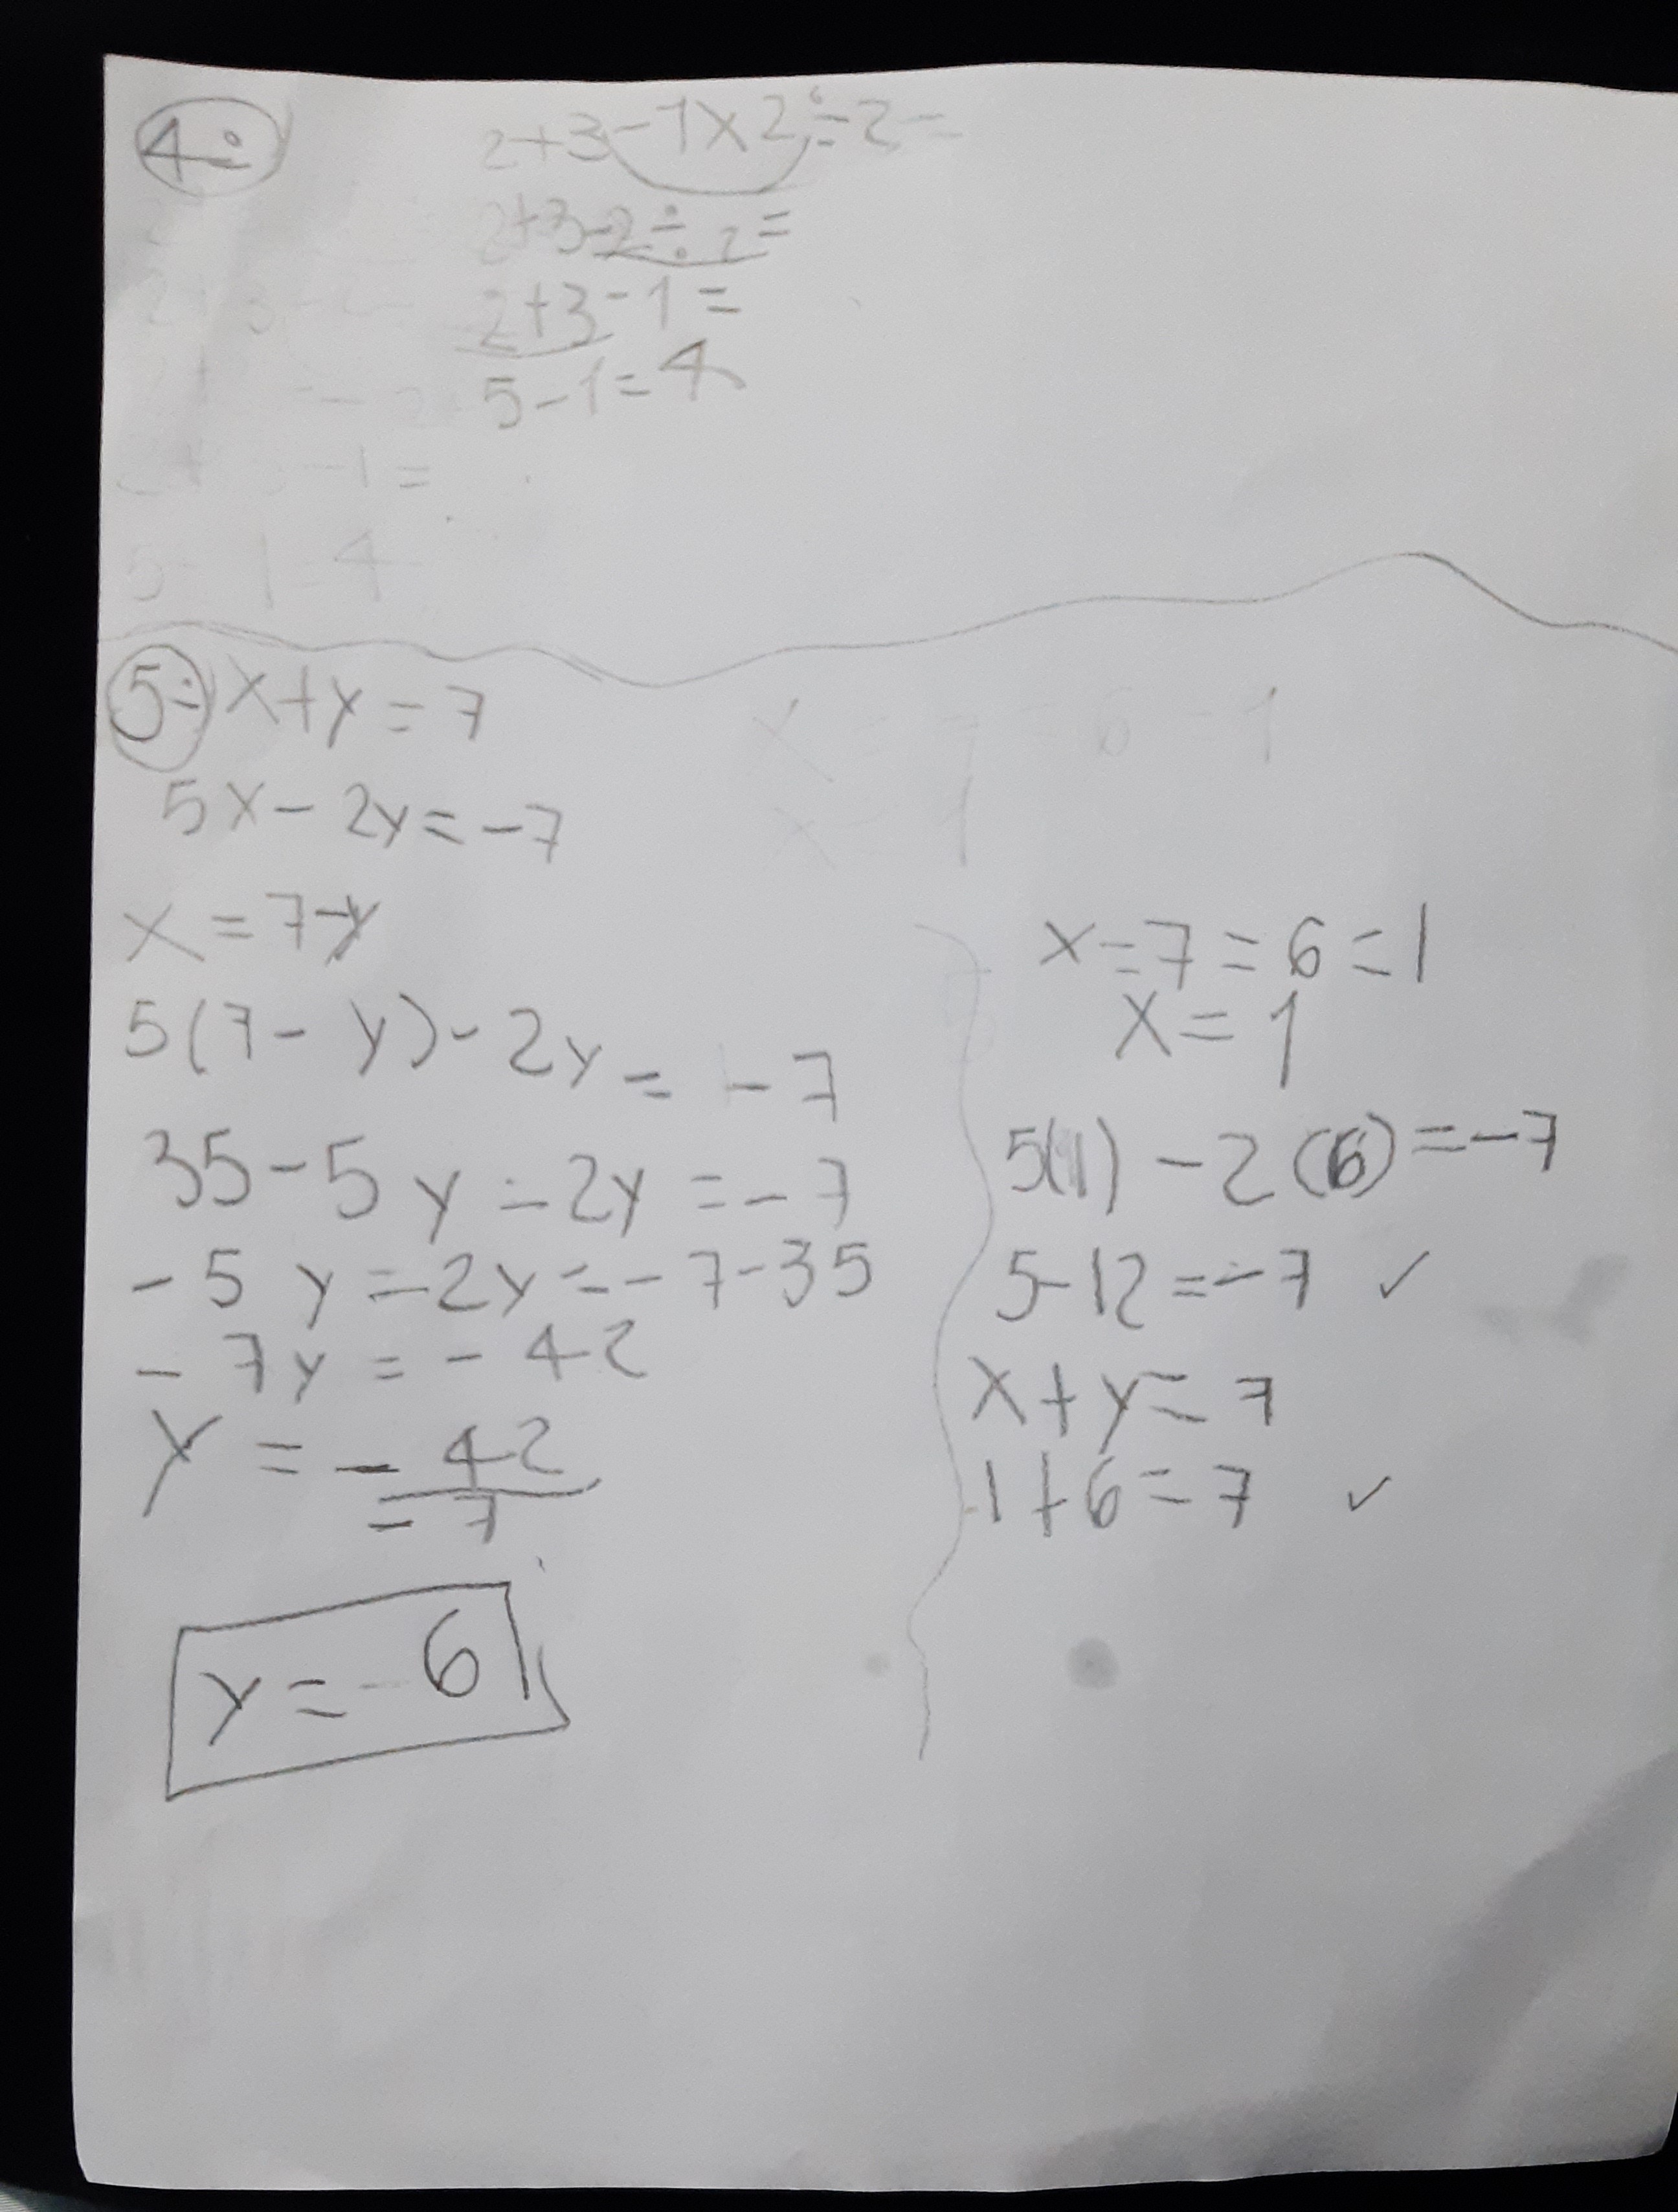 4-
2+3-1×2÷2=
2+3-2÷2=
2+3-1=
5-1=4
-1=
5-1=4
5- x+y=7
5x-2y=-7
x=7-y
5(7-y)-2y=-7
35-5y-2y=-7
-5y-2y=-7-35
-7y=-42
y=-42
-7
y=-6
x=7=6=1
x=1
x=7=6=1
x=1
5(1)-2(6)=-7
5-12=-7 ✓
x+y=7
1+6=7 ✓